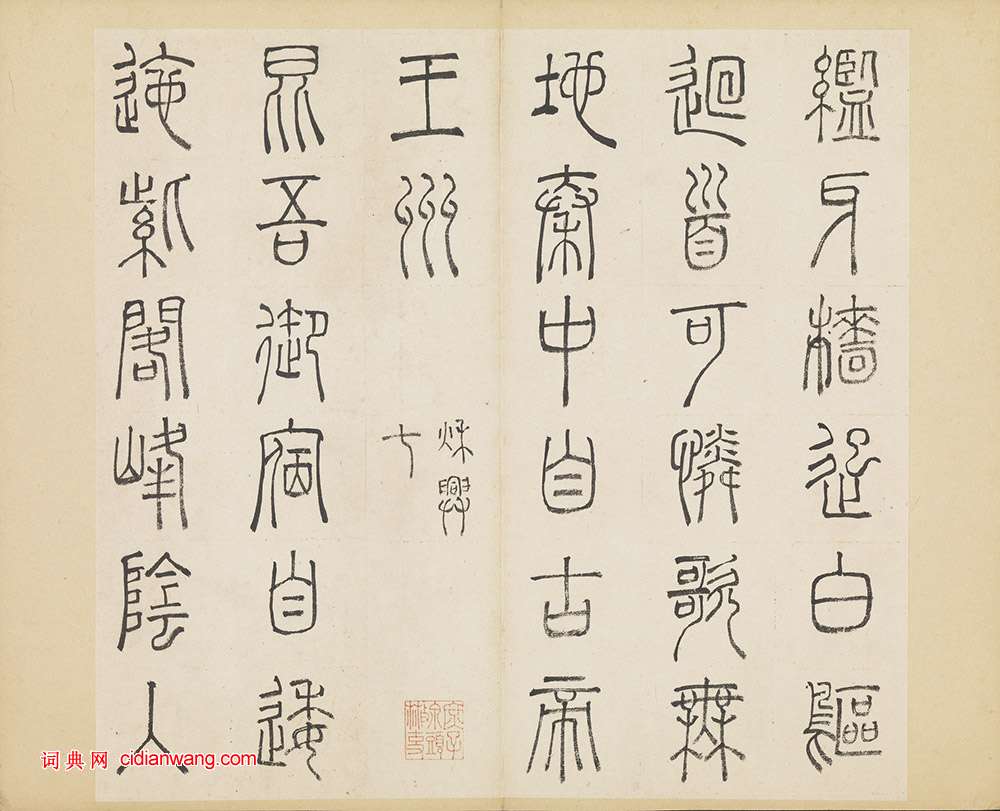 纜牙檣起白鷗
迴首可憐歌舞
地秦中自古帝
王州
秋興
七
昆吾御宿自逶
迤紫閣峰陰入
词典网 cidianwang.com